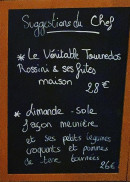 Suggestions du Chef
* Le Véritable Tournedos
Rossini & ses frites
maison 28€
* Limande-sole
façon meunière
et ses petits légumes
croquants et pommes
de terre
26€